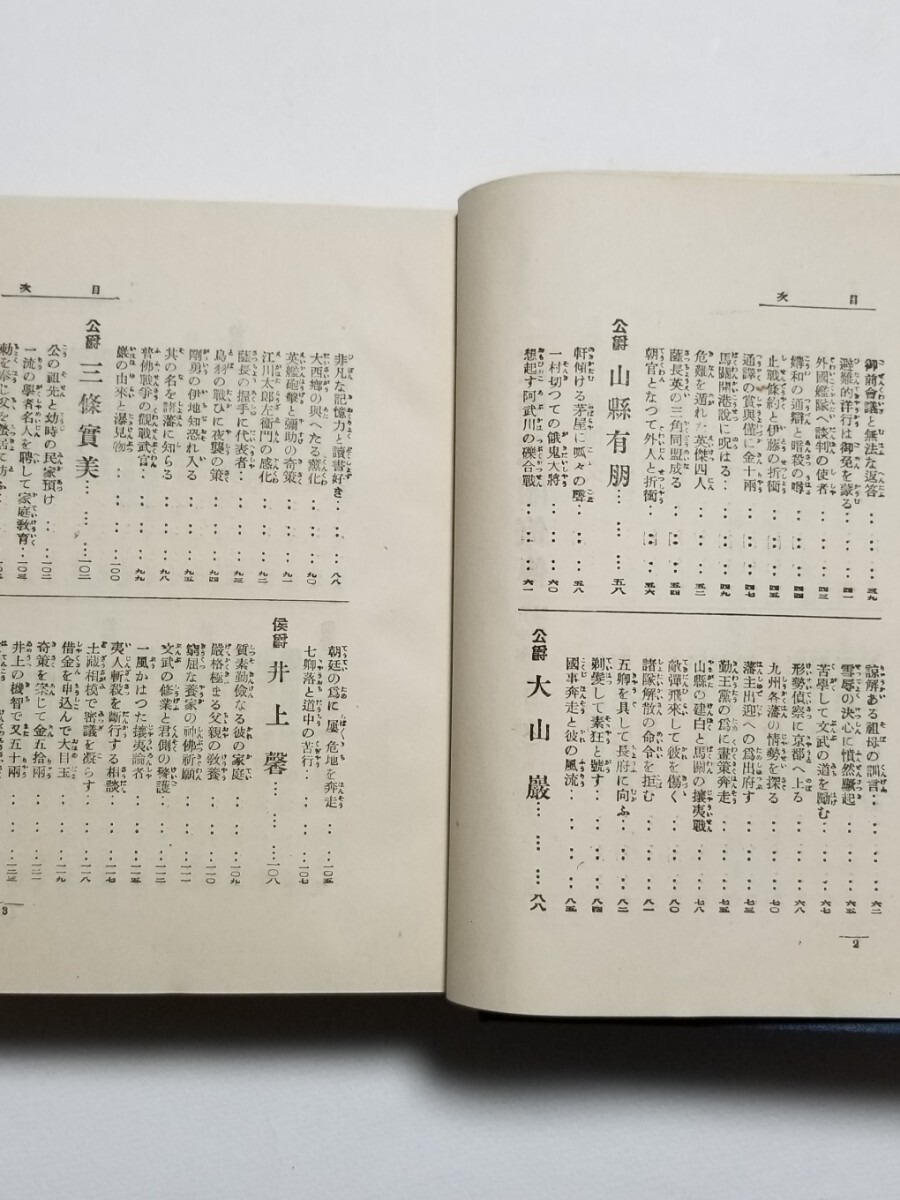 目次
御前會議と無法な返答‥‥三九
避難的洋行は御免を蒙る‥‥四一
外國艦隊へ談判の使者‥‥四三
媾和の通辯と暗殺の噂‥‥四四
止戰條約と伊藤の折衝‥‥四五
通譯の賞與僅に金十兩‥‥四七
馬關開港說に呪はる‥‥四九
危難を遁れた英傑四人‥‥五二
薩長英の三角同盟成る‥‥五四
朝官となつて外人と折衝‥‥五六
公爵 山縣有朋‥‥五八
軒傾ける茅屋に呱々の聲‥‥五八
一村切つての餓鬼大將‥‥六〇
想起す阿武川の磯合戰‥‥六一
諒解ある祖母の訓言‥‥六二
雪辱の決心に憤然蹶起‥‥六五
苦學して文武の道を勵む‥‥六七
形勢偵察に京都へ上る‥‥六八
九州各藩の情勢を探る‥‥七〇
藩主出迎への爲出府す‥‥七三
勤王黨の爲に畫策奔走‥‥七五
山縣の建白と馬關の攘夷戰‥‥七八
敵彈飛來して彼を傷く‥‥八〇
諸隊解散の命令を拒む‥‥八一
五卿を具して長府に向ふ‥‥八二
剃髮して素狂と號す‥‥八四
國事奔走と彼の風流‥‥八五
公爵 大山巖‥‥八八
2
目次
非凡な記憶力と讀書好き‥‥八八
大西鄕の與へたる薰化‥‥九〇
英艦砲擊と彌助の奇策‥‥九一
江川太郎左衞門の感化‥‥九二
薩長の握手に代表者‥‥九三
鳥羽の戰ひに夜襲の策‥‥九四
剛勇の伊地知恐れ入る‥‥九五
其の名を諸藩に知らる‥‥九八
普佛戰爭の觀戰武官‥‥九九
巖の由來と瀑見物‥‥一〇〇
公爵 三條實美‥‥一〇二
公の祖先と幼時の民家預け‥‥一〇二
一流の學者名人を聘して家庭敎育‥‥一〇三
朝廷の爲に屢危地を奔走‥‥一〇五
七卿落と道中の苦行‥‥一〇七
侯爵 井上馨‥‥一〇八
質素勤儉なる彼の家庭‥‥一〇九
嚴格極まる父親の敎養‥‥一一〇
窮屈な養家の神佛祈願‥‥一一一
文武の修業と君側の警護‥‥一一二
一風かはつた攘夷論者‥‥一一五
夷人斬殺を斷行する相談‥‥一一七
土藏相模で密議を凝らす‥‥一一八
借金を申込んで大目玉‥‥一一九
奇策を案じて金五拾兩‥‥一二一
井上の機智で又五十兩‥‥一二三
3